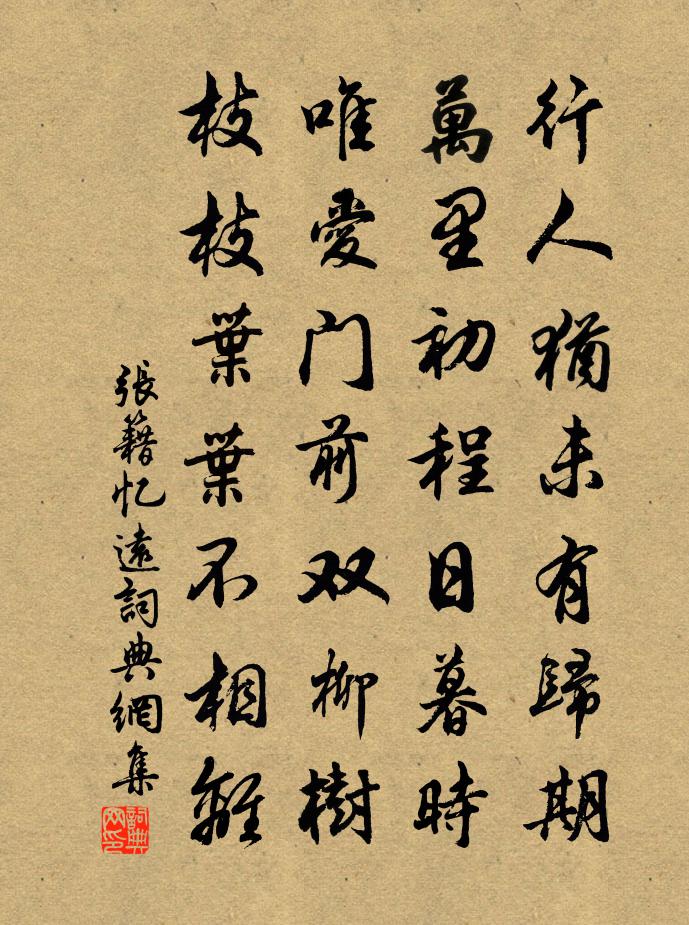 行人猶未有歸期
萬里初程日暮時
唯愛门前双柳樹
枝枝葉葉不相離
張籍忆遠詞典網集
詞典网印